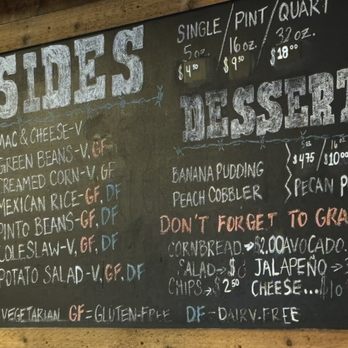 SIDES
MAC & CHEESE-V
GREEN BEANS-V, GF
CREAMED CORN-V, GF
MEXICAN RICE-GF, DF
PINTO BEANS-GF, DF
COLESLAW-V, GF, DF
POTATO SALAD-V, GF, DF
VEGETARIAN GF=GLUTEN-FREE DF-DAIRY-FREE
SINGLE/PINT/QUART
5oz./16oz./32oz.
$4.50 $9.50 $18.00
DESSERT
$4.75 $10.00
BANANA PUDDING
PEACH COBBLER
PECAN P
DON'T FORGET TO GRA
CORNBREAD→$2.00 AVOCADO.
SALAD→$ JALAPEÑO
CHIPS→$2.50 CHEESE...